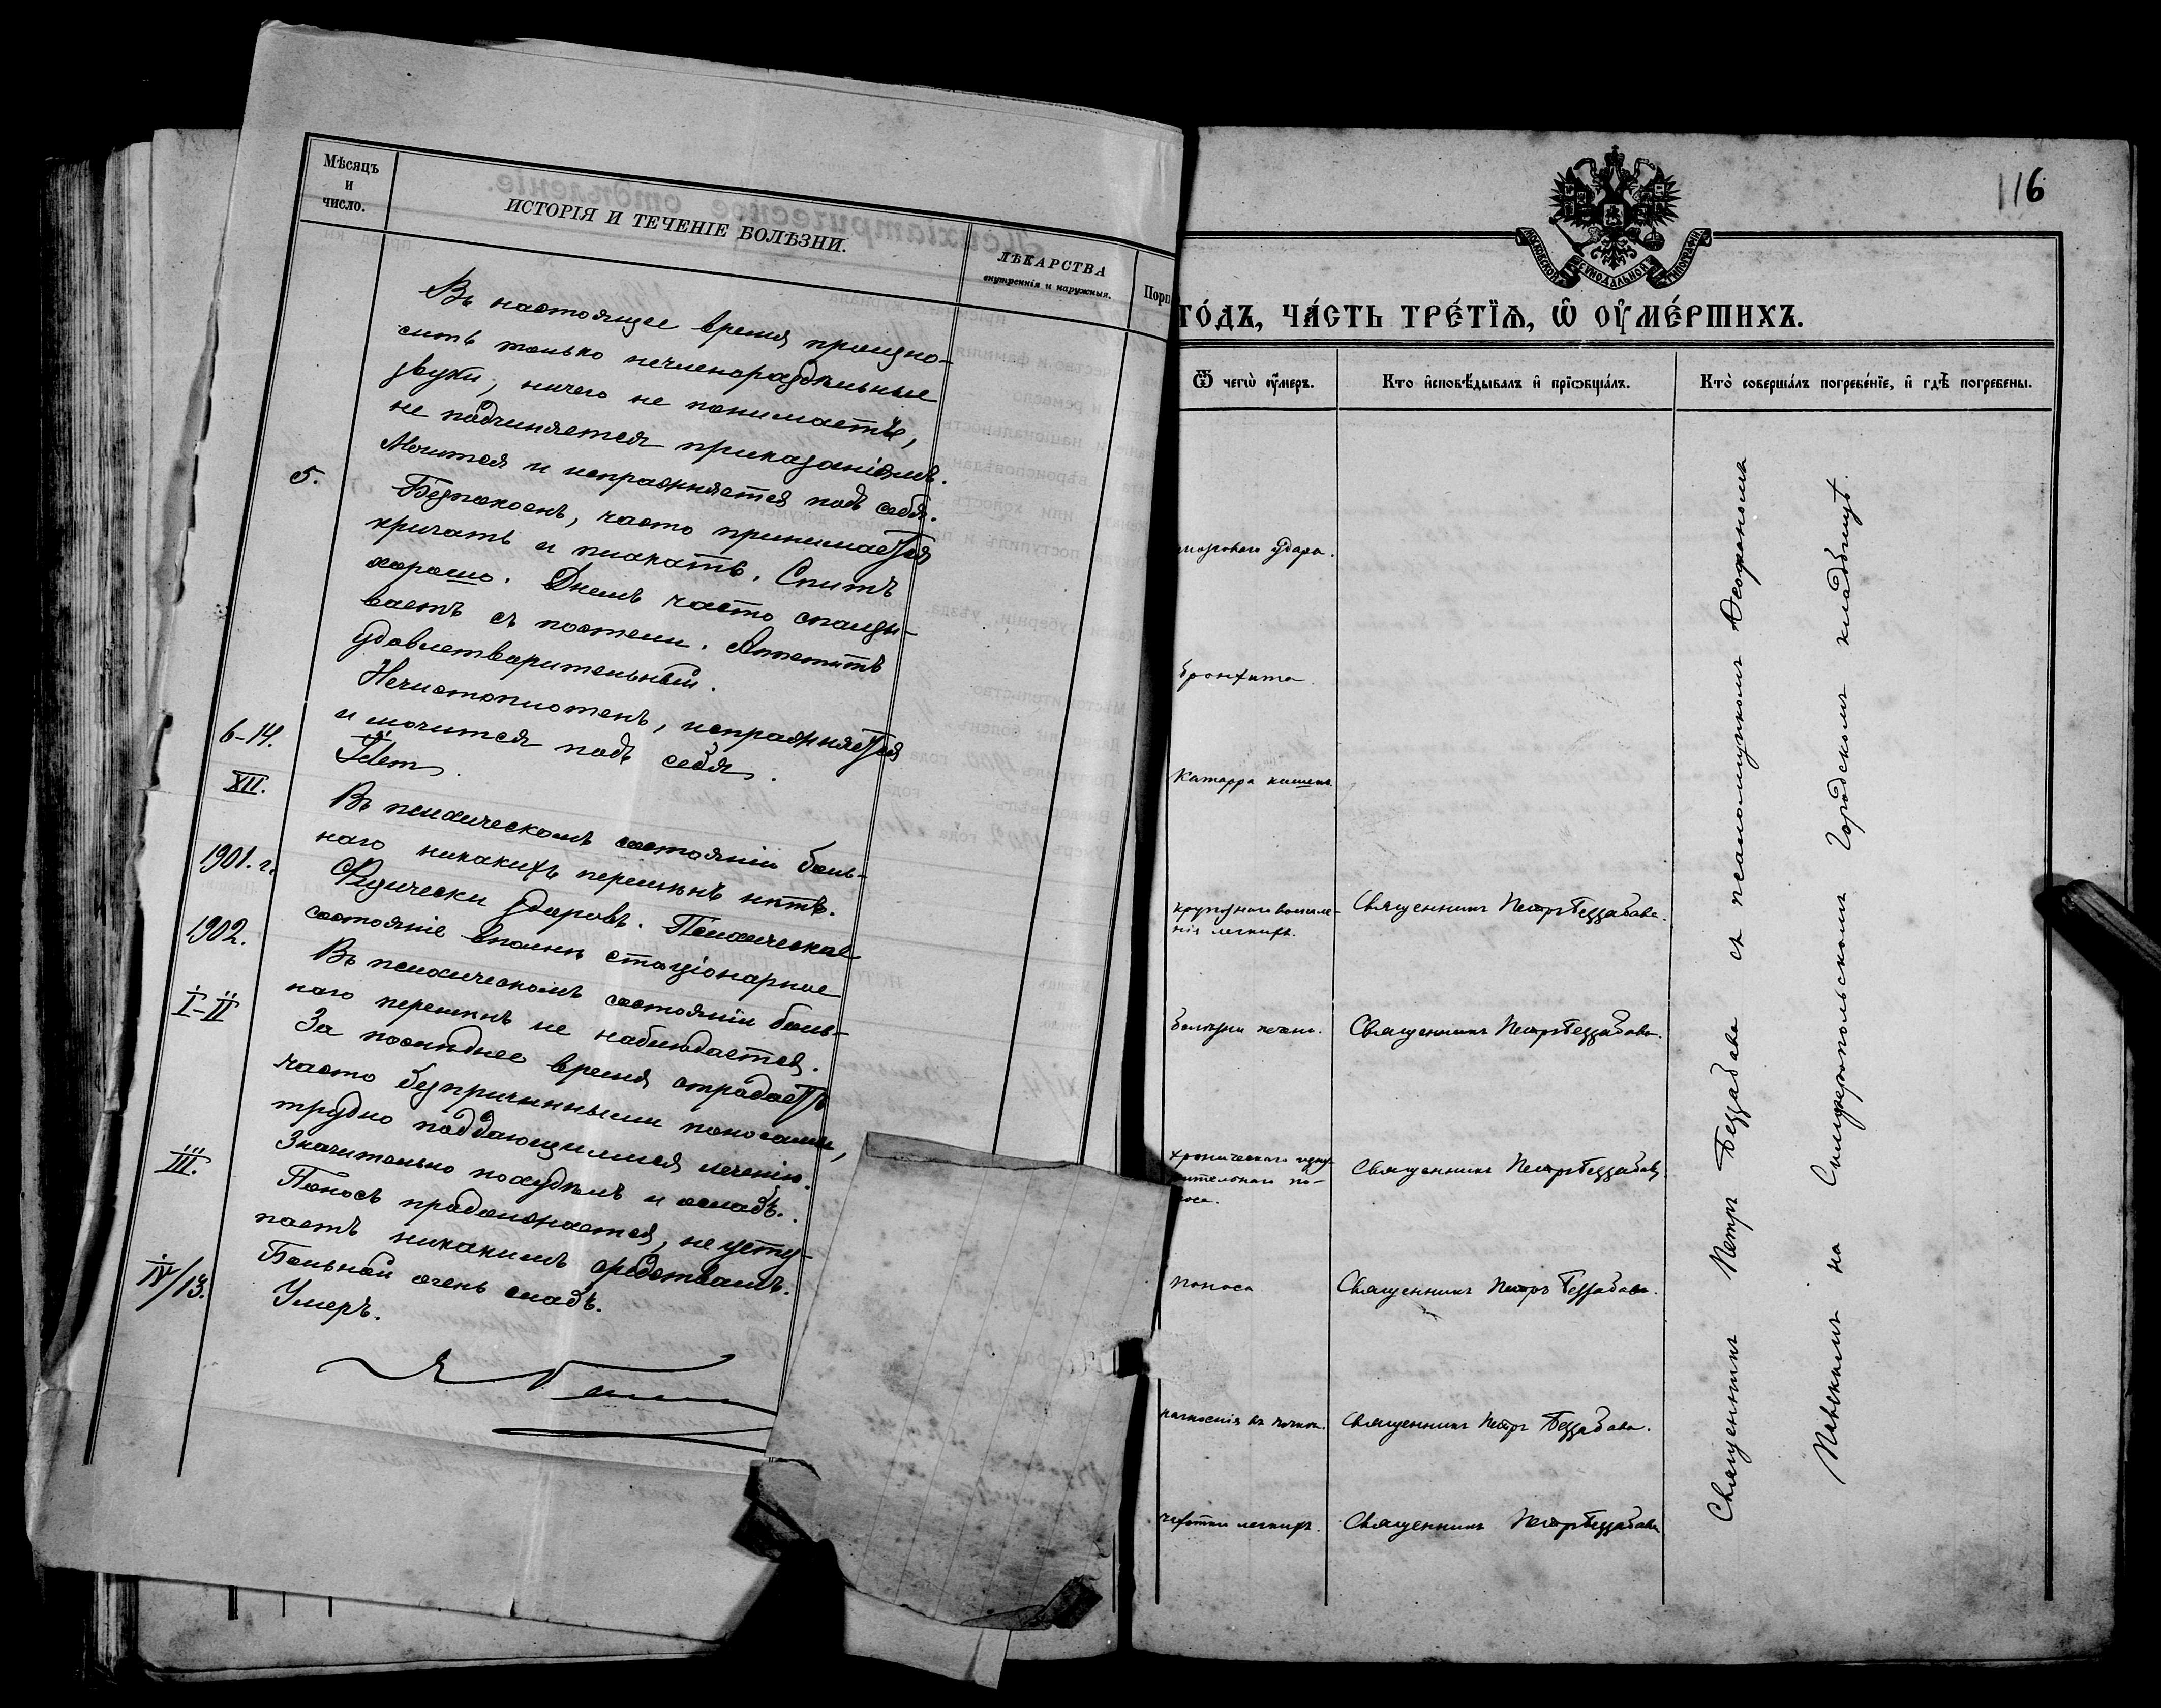 Мѣсяцъ
и
число.
ИСТОРІЯ И ТЕЧЕНІЕ БОЛѢЗНИ.
ЛѢКАРСТВА
внутреннія и наружныя.
Порц
Въ настоящее время произно-
ситъ только нечленораздѣльные
звуки, ничего не понимаетъ,
не подчиняется приказаніямъ.
Мочится и испражняется подъ себя.
5.
Безпокоенъ, часто принимается
кричать и плакать. Спитъ
хорошо. Днемъ часто
ваетъ съ постели. Аппетитъ
удовлетворительный.
Нечистоплотенъ, испражняется
и мочится подъ себя.
6-14.
Idem
XII.
Въ психическомъ состояніи боль-
наго никакихъ перемѣнъ нѣтъ.
1901. г.
Физически здоровъ. Психическое
состояніе вполнѣ стаціонарное
1902.
Въ психическомъ состояніи боль-
наго перемѣнъ не наблюдается.
I-II
За послѣднее время страдаетъ
часто безпричинными поносами,
трудно поддающимися леченію.
Значительно похудѣлъ и ослабъ.
III.
Поносъ продолжается, не усту-
паетъ никакимъ средствамъ.
Больной очень слабъ.
IV/13.
Умеръ.
116
МОСКОВСКОЙ СѴНОДАЛЬНОЙ ТИПОГРАФІИ
ГО́ДЪ, ЧА́СТЬ ТРЕ́ТЇѦ, Ѽ ОУ҆МЕ́РШИХЪ.
Ѿ чегѡ̀ оу҆́меръ.
Кто и҆сповѣ́дывалъ и҆ прїѡбща́лъ.
Кто̀ соверша́лъ погребе́нїе, и҆ гдѣ̀ погребены.
мозгового удара.
бронхита
Катарра кишекъ.
крупознаго воспале-
нія легкихъ.
Священникъ Петръ Беззабава.
болѣзни печени.
Священникъ Петръ Беззабава.
хроническаго изну-
рительнаго по-
носа.
Священникъ Петръ Беззабава
поноса
Священникъ Петръ Беззабава.
Священникъ Петръ Беззабава.
чахотки легкихъ.
Священникъ Петръ Беззабава
Священникъ Петръ Беззабава съ псаломщикомъ
на Симферопольскомъ Городскомъ кладбищѣ.